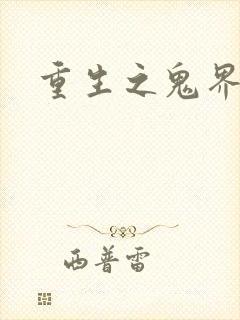 重生之鬼界
西普雷